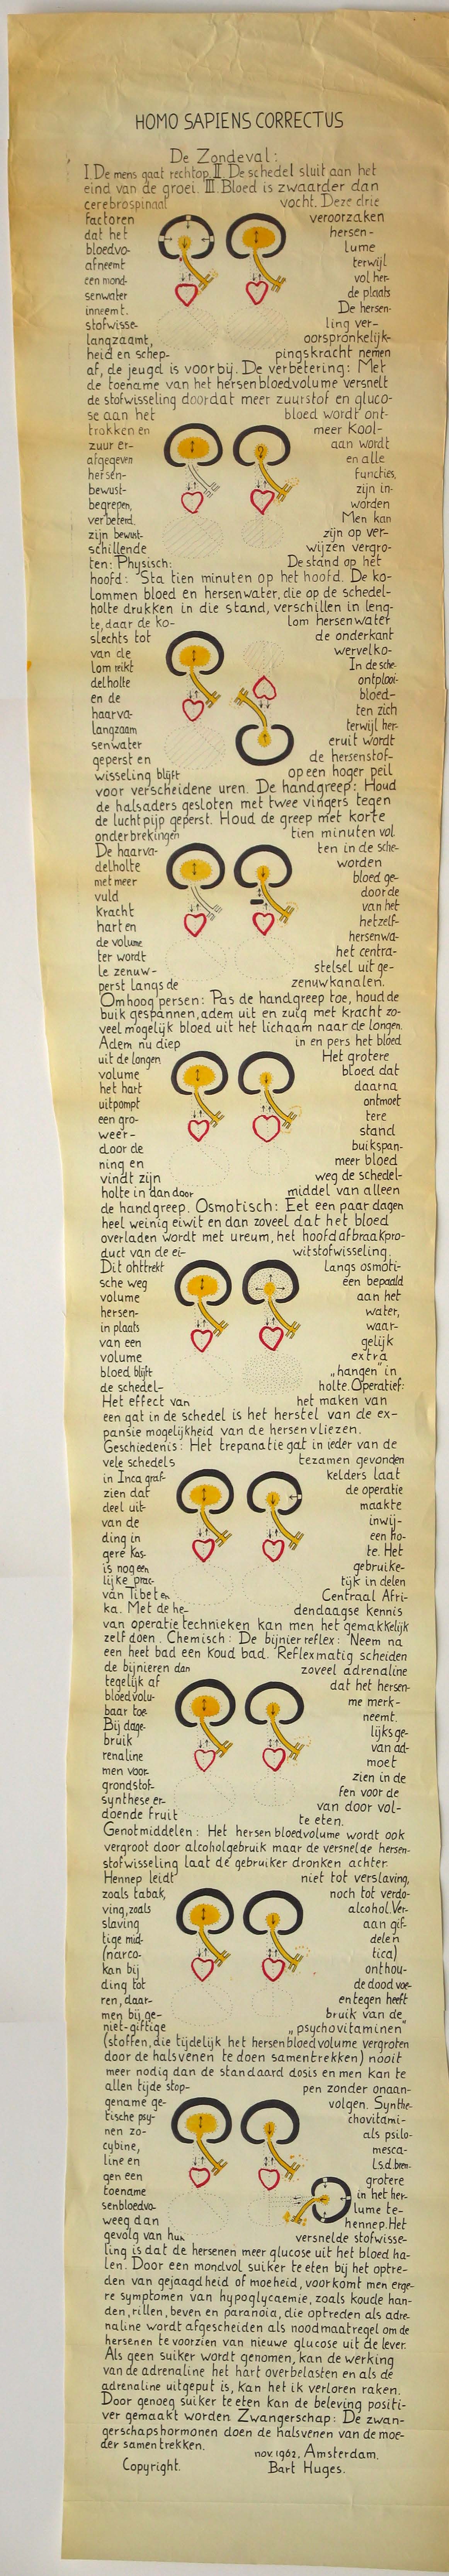 HOMO SAPIENS CORRECTUS
De Zondeval:
I De mens gaat rechtop. II De schedel sluit aan het
eind van de groei. III Bloed is zwaarder dan
cerebrospinaal vocht. Deze drie
factoren veroorzaken
dat het hersen-
bloedvo- lume
afneemt terwijl
een mond- vol her-
senwater de plaats
inneemt. De hersen-
stofwisse- ling ver-
langzaamt, oorspronkelijk-
heid en schep- pingskracht nemen
af, de jeugd is voorbij. De verbetering: Met
de toename van het hersenbloedvolume versnelt
de stofwisseling doordat meer zuurstof en gluco-
se aan het bloed wordt ont-
trokken en meer kool-
zuur er- aan wordt
afgegeven en alle
hersen- functies,
bewust- zijn in-
begrepen, worden
verbeterd. Men kan
zijn bewust- zijn op ver-
schillende wijzen vergro-
ten: Physisch: De stand op het
hoofd: Sta tien minuten op het hoofd. De ko-
lommen bloed en hersenwater, die op de schedel-
holte drukken in die stand, verschillen in leng-
te, daar de ko- lom hersenwater
slechts tot de onderkant
van de wervelko-
lom reikt In de sche-
delholte ontplooi-
en de bloed-
haarva- ten zich
langzaam terwijl her-
senwater eruit wordt
geperst en de hersenstof-
wisseling blijft op een hoger peil
voor verscheidene uren. De handgreep: Houd
de halsaders gesloten met twee vingers tegen
de luchtpijp geperst. Houd de greep met korte
onderbrekingen tien minuten vol.
De haarva- ten in de sche-
delholte worden
met meer bloed ge-
vuld door de
kracht van het
hart en hetzelf-
de volume hersenwa-
ter wordt het centra-
le zenuw- stelsel uit ge-
perst langs de zenuwkanalen.
Omhoog persen: Pas de handgreep toe, houd de
buik gespannen, adem uit en zuig met kracht zo-
veel mogelijk bloed uit het lichaam naar de longen.
Adem nu diep in en pers het bloed
uit de longen Het grotere
volume bloed dat
het hart daarna
uitpompt ontmoet
een gro- tere
weer- stand
door de buikspan-
ning en meer bloed
vindt zijn weg de schedel-
holte in dan door middel van alleen
de handgreep. Osmotisch: Eet een paar dagen
heel weinig eiwit en dan zoveel dat het bloed
overladen wordt met ureum, het hoofdafbraakpro-
duct van de ei- witstofwisseling.
Dit onttrekt langs osmoti-
sche weg een bepaald
volume aan het
hersen- water,
in plaats waar-
van een gelijk
volume extra
bloed blijft „hangen" in
de schedel- holte. Operatief:
Het effect van het maken van
een gat in de schedel is het herstel van de ex-
pansie mogelijkheid van de hersenvliezen.
Geschiedenis: Het trepanatiegat in ieder van de
vele schedels tezamen gevonden
in Inca graf- kelders laat
zien dat de operatie
deel uit- maakte
van de inwij-
ding in een ho-
gere kas- te. Het
is nog een gebruike-
lijke prac- tijk in delen
van Tibet en Centraal Afri-
ka. Met de he- dendaagse kennis
van operatietechnieken kan men het gemakkelijk
zelf doen. Chemisch: De bijnierreflex: Neem na
een heet bad een koud bad. Reflexmatig scheiden
de bijnieren dan zoveel adrenaline
tegelijk af dat het hersen-
bloedvolu- me merk-
baar toe- neemt.
Bij dage- lijks ge-
bruik van ad-
renaline moet
men voor- zien in de
grondstof- fen voor de
synthese er- van door vol-
doende fruit te eten.
Genotmiddelen: Het hersenbloedvolume wordt ook
vergroot door alcoholgebruik maar de versnelde hersen-
stofwisseling laat de gebruiker dronken achter.
Hennep leidt niet tot verslaving,
zoals tabak, noch tot verdo-
ving, zoals alcohol. Ver-
slaving aan gif-
tige mid- delen
(narco- tica)
kan bij onthou-
ding tot de dood voe-
ren, daar- entegen heeft
men bij ge- bruik van de
niet-giftige „psychovitaminen"
(stoffen, die tijdelijk het hersenbloedvolume vergroten
door de halsvenen te doen samentrekken) nooit
meer nodig dan de standaard dosis en men kan te
allen tijde stop- pen zonder onaan-
gename ge- volgen. Synthe-
tische psy- chovitami-
nen zo- als psilo-
cybine, mesca-
line en l.s.d. bren-
gen een grotere
toename in het her-
senbloedvo- lume te-
weeg dan hennep. Het
gevolg van hun versnelde stofwisse-
ling is dat de hersenen meer glucose uit het bloed ha-
len. Door een mondvol suiker te eten bij het optre-
den van gejaagdheid of moeheid, voorkomt men erge-
re symptomen van hypoglycaemie, zoals koude han-
den, rillen, beven en paranoia, die optreden als adre-
naline wordt afgescheiden als noodmaatregel om de
hersenen te voorzien van nieuwe glucose uit de lever.
Als geen suiker wordt genomen, kan de werking
van de adrenaline het hart overbelasten en als de
adrenaline uitgeput is, kan het ik verloren raken.
Door genoeg suiker te eten kan de beleving positi-
ver gemaakt worden. Zwangerschap: De zwan-
gerschapshormonen doen de halsvenen van de moe-
der samentrekken.
nov. 1962, Amsterdam.
Copyright. Bart Huges.